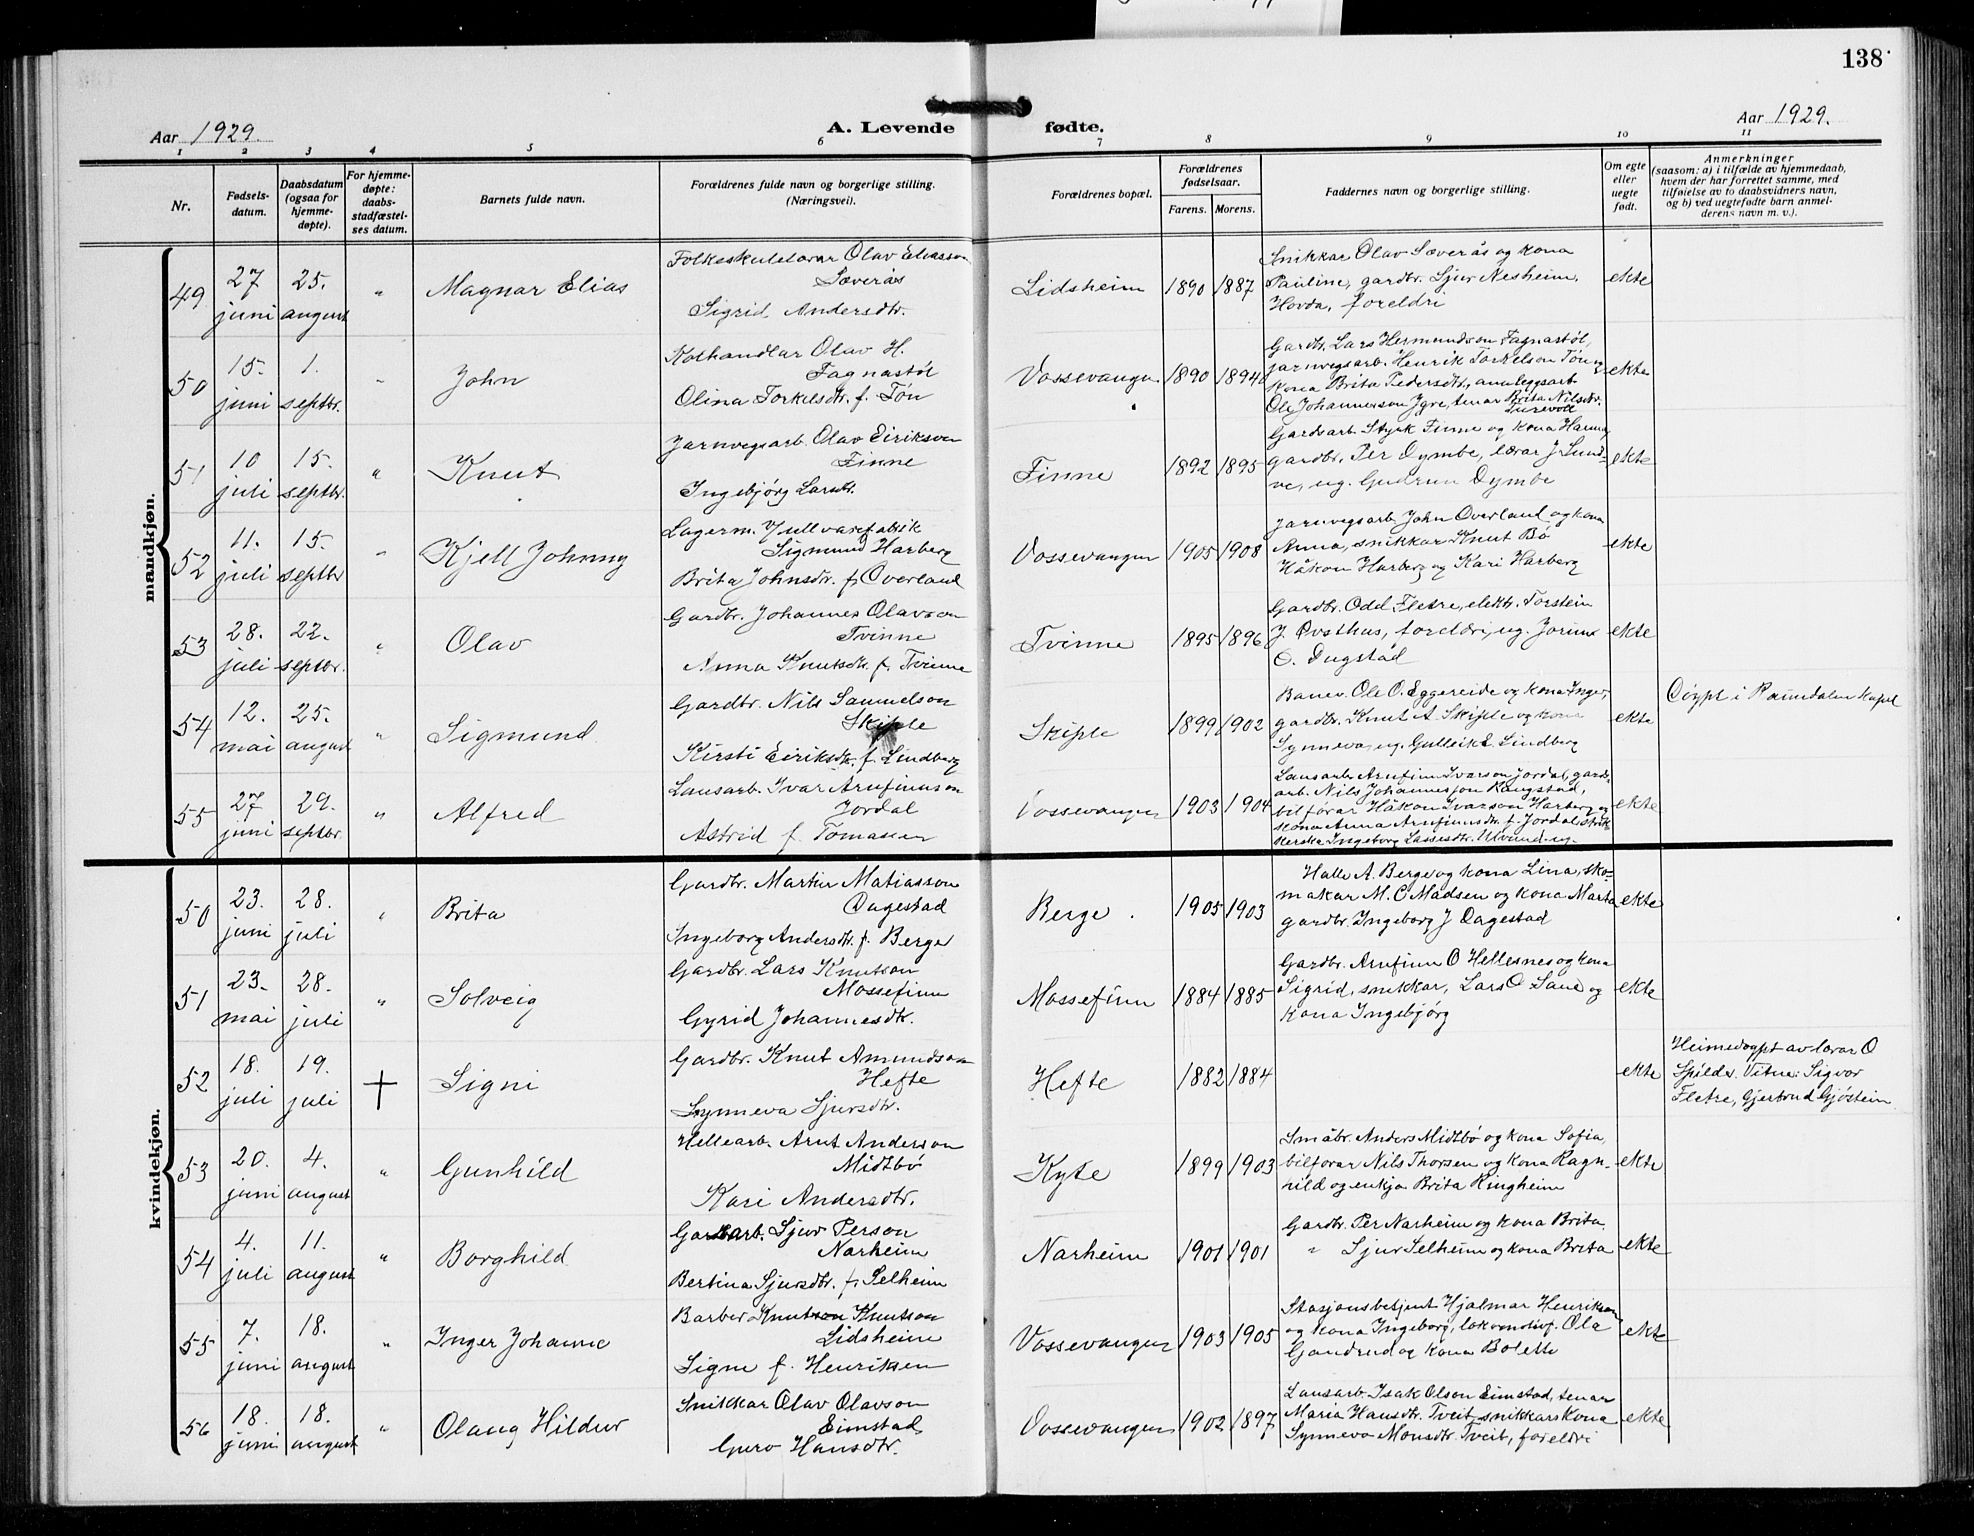 138
Aar 1929.
A. Levende fødte.
Aar 1929.
1 2 3 4 5 6 7 8 9 10 11
Nr.
Fødsels-
datum.
Daabsdatum
(ogsaa for
hjemme-
døpte).
For hjemme-
døpte:
daabs-
stadfæstel-
ses datum.
Barnets fulde navn.
Forældrenes fulde navn og borgerlige stilling.
(Næringsvei).
Forældrenes bopæl.
Forældrenes
fødselsaar.
Farens. Morens.
Faddernes navn og borgerlige stilling.
Om egte
eller
uegte
født.
Anmerkninger
(saasom: a) i tilfælde av hjemmedaab,
hvem der har forrettet samme, med
tilføielse av to daabsvidners navn,
og b) ved uegtefødte barn anmel-
derens navn m. v.).
mandkjøn.
49
27
juni
25.
august
"
Magnar Elias
Folkeskulelærar Olav Eliasson
Sæverås
Sigrid Andersdtr.
Lidsheim
1890 1887
Snikkar Olav Sæverås og kona
Pauline, gardbr. Sjur Nesheim,
Hovda, foreldri
ekte
50
15.
juni
1.
septbr.
"
John
Kolhandlar Olav H.
Fagnastøl
Olina Torkelsdtr. f. Tøn
Vossevangen
1890 1894
Gardbr. Lars Hermundson Fagnastøl,
jarnvegsarb. Henrik Torkelson Tøn og
kona Brita Pedersdtr., anleggsarb.
Ole Johannesson Ygre, tenar Brita Nilsdtr.
ekte
51
10
juli
15.
septbr.
"
Knut
Jarnvegsarb. Olav Eirikson
Finne
Ingebjørg Larsdtr.
Finne
1892 1895
Gardsarb. Styrk Finne og kona
gardbr. Per Dymbe, lærar J Lund-
ve, ug. Gudrun Dymbe
ekte
52
11.
juli
15.
septbr
"
Kjell Johnny
Lagerm. Ullvarefabrik
Sigmund Harberg
Brita Johnsdtr. f. Øverland
Vossevangen
1905 1908
Jarnvegsarb. John Øverland og kona
Anna, snikkar Knut Bø
Håkon Harberg og Kari Harberg
ekte
53
28.
juli
22.
septbr.
"
Olav
Gardbr. Johannes Olavson
Tvinne
Anna Knutsdtr. f. Tvinne
Tvinne
1895 1896
Gardbr. Odd Fletre, elektr. Torstein
J. Øvsthus, foreldri, ug. Jorunn
O. Dugstad
ekte
54
12.
mai
25.
august
"
Sigmund
Gardbr. Nils Samuelson
Skiple
Kirsti Eiriksdtr. f. Lindberg
Skiple
1899 1902
Banev. Ole O. Eggereide og kona Inger,
gardbr. Knut A. Skiple og kona
Synneva, ug. Gulleik E. Lindberg
ekte
Døypt i Raundalen kapel
55
27
juni
29.
septbr.
"
Alfred
Lausarb. Ivar Arnfinnson
Jordal
Astrid f. Tomassen
Vossevangen
1903 1904
Lausarb. Arnfinn Ivarson Jordal, gards-
arb. Nils Johannesson Rongstad,
bilførar Håkon Ivarson Harberg og
kona Anna Arnfinnsdtr. f. Jordal, strik-
kerske Ingeborg Lassesdtr. Ulvund ug.
ekte
kvindekjøn.
50
23.
juni
28.
juli
"
Brita
Gardbr. Martin Matiasson
Dagestad
Ingeborg Andersdtr. f. Berge
Berge
1905 1903
Halle A. Berge og kona Lina, sko-
makar M. C Madsen og kona Marta
gardbr. Ingeborg J Dagestad
ekte
51
23.
mai
28.
juli
"
Solveig
Gardbr. Lars Knutson
Mossefinn
Gyrid Johannesdtr.
Mossefinn
1884 1885
Gardbr. Arnfinn O Hellesnes og kona
Sigrid, snikkar, Lars O Sane og
kona Ingebjørg
ekte
52
18.
juli
19.
juli
†
Signi
Gardbr. Knut Amundson
Hefte
Synneva Sjursdtr.
Hefte
1882 1884
ekte
Heimedøypt av lærar O
Spilde. Vitne: Sigvor
Fletre, Gjertrud Gjøstein
53
20.
juni
4.
august
"
Gunhild
Hellearb. Arnt Anderson
Midtbø
Kari Andersdtr.
Kyte
1899 1903
Småbr. Anders Midtbø og kona Sofia,
bilførar Nils Thorsen og kona Ragn-
hild og enkja Brita Ringheim
ekte
54
4.
juli
11.
august
"
Borghild
Gardsarb. Sjur Person
Narheim
Bertina Sjursdtr. f. Selheim
Narheim
1901 1901
Gardbr. Per Narheim og kona Brita
" Sjur Selheim og kona Brita
ekte
55
7.
juni
18.
august
"
Inger Johanne
Barber Knutson Knutson
Lidsheim
Signe f. Henriksen
Vossevangen
1903 1905
Stasjonsbetjent Hjalmar Henriksen
og kona Ingeborg, lokomotivf. Ola
Gandrud og kona Bolette
ekte
56
18.
juni
18.
august
"
Olaug Hildur
Snikkar Olav Olavson
Eimstad
Guro Hansdtr.
Vossevangen
1902 1897
Lausarb. Isak Olson Eimstad, tenar
Maria Hansdtr. Tveit, snikkarkona
Synneva Monsdtr. Tveit, foreldri
ekte